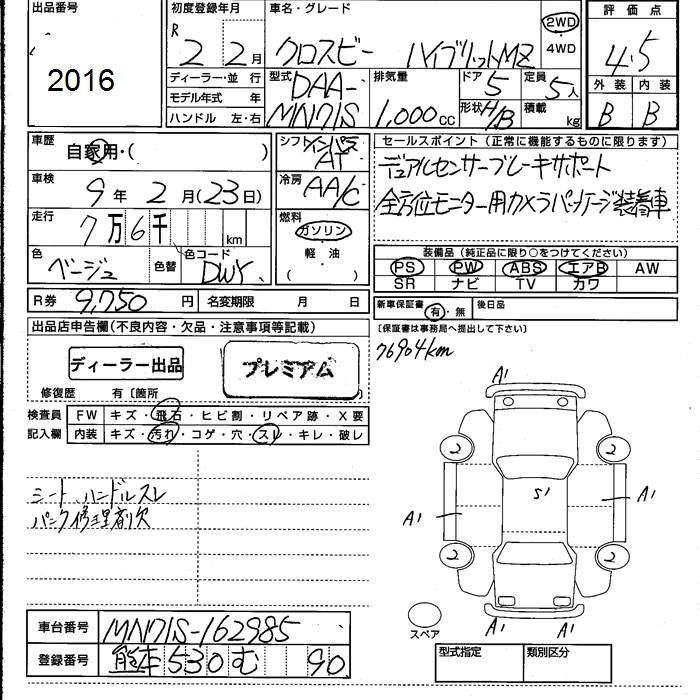 出品番号 初度登録年月 車名・グレード 評価点
2016 R 2 2月 クロスビー ハイブリットMZ 2WD ・4WD 4.5
ディーラー・並 行 型式 DAA-MN71S 排気量 1,000cc ドア 5 定員 5人 外装 内装
モデル年式 年 形状 H/B 積載 kg B B
ハンドル 左・右
車歴 自家用・( ) シフト インパネAT セールスポイント (正常に機能するものに限ります)
車検 9年 2月 (23日) 冷房 AA/C デュアルセンサーブレーキサポート
走行 7万6千 km 燃料 ガソリン 全方位モニター用カメラパッケージ装着車
・軽油・
( )
色 ベージュ 色替 色コード DWY 装備品 (純正品に限り○をつけてください)
PS PW ABS エアB AW
SR ナビ TV カワ
R券 9,750円 名変期限 月 日 新車保証書 有・無 後日品
出品店申告欄(不良内容・欠品・注意事項等記載) (保証書は事務局へ提出して下さい)
ディーラー出品 プレミアム 76904km
修復歴 有〔箇所 〕
検査員 FW キズ・飛石・ヒビ割・リペア跡・X要
記入欄 内装 キズ・汚れ・コゲ・穴・スレ・キレ・破レ
A1
2 2
シート、ハンドルスレ S1
パンク修理剤欠 A1 A1
2 2
スペア A1 A1
車台番号 MN71S-162985
登録番号 熊本 530 む 90
型式指定 類別区分